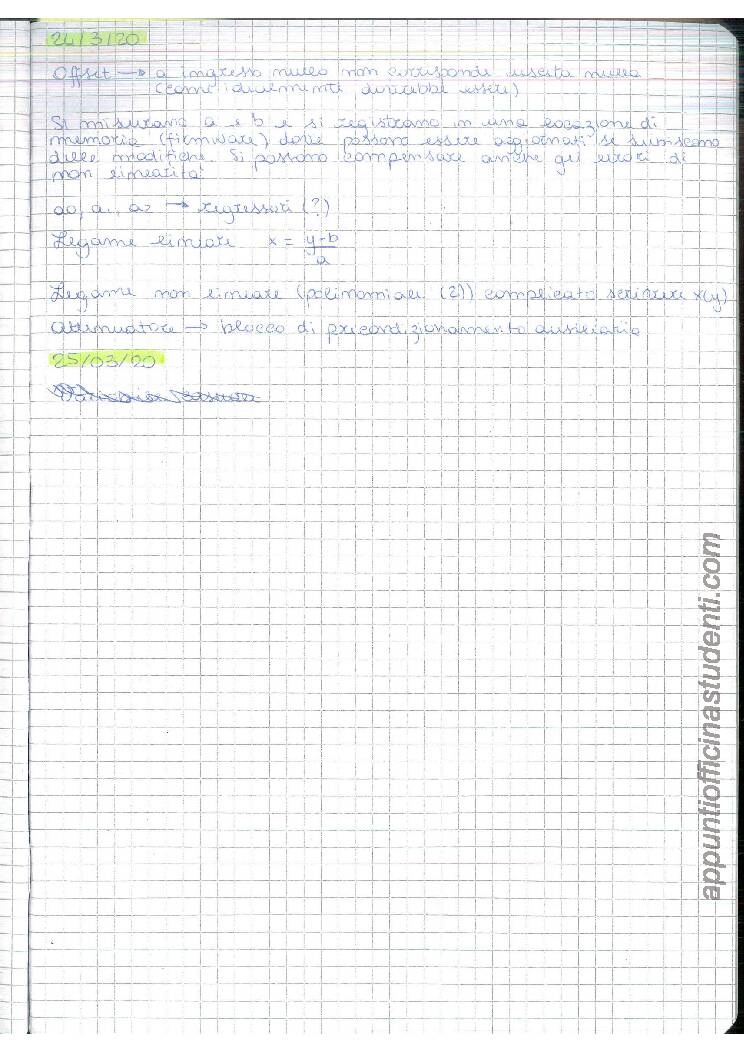 24/3/20
Offset → a ingresso nullo non corrisponde uscita nulla
(come idealmente dovrebbe essere)
Si misurano a e b e si registrano in una locazione di
memoria (firmware) dove possono essere aggiornati se subiscono
delle modifiche. Si possono compensare anche gli errori di
non linearità
a0, a1, a2 → regressori (?)
Legame lineare x = y-b
a
Legame non lineare (polinomiale (2)) complicato scrivere x(y)
Attenuatore → blocco di precondizionamento ausiliario
25/03/20
appuntiofficinastudenti.com